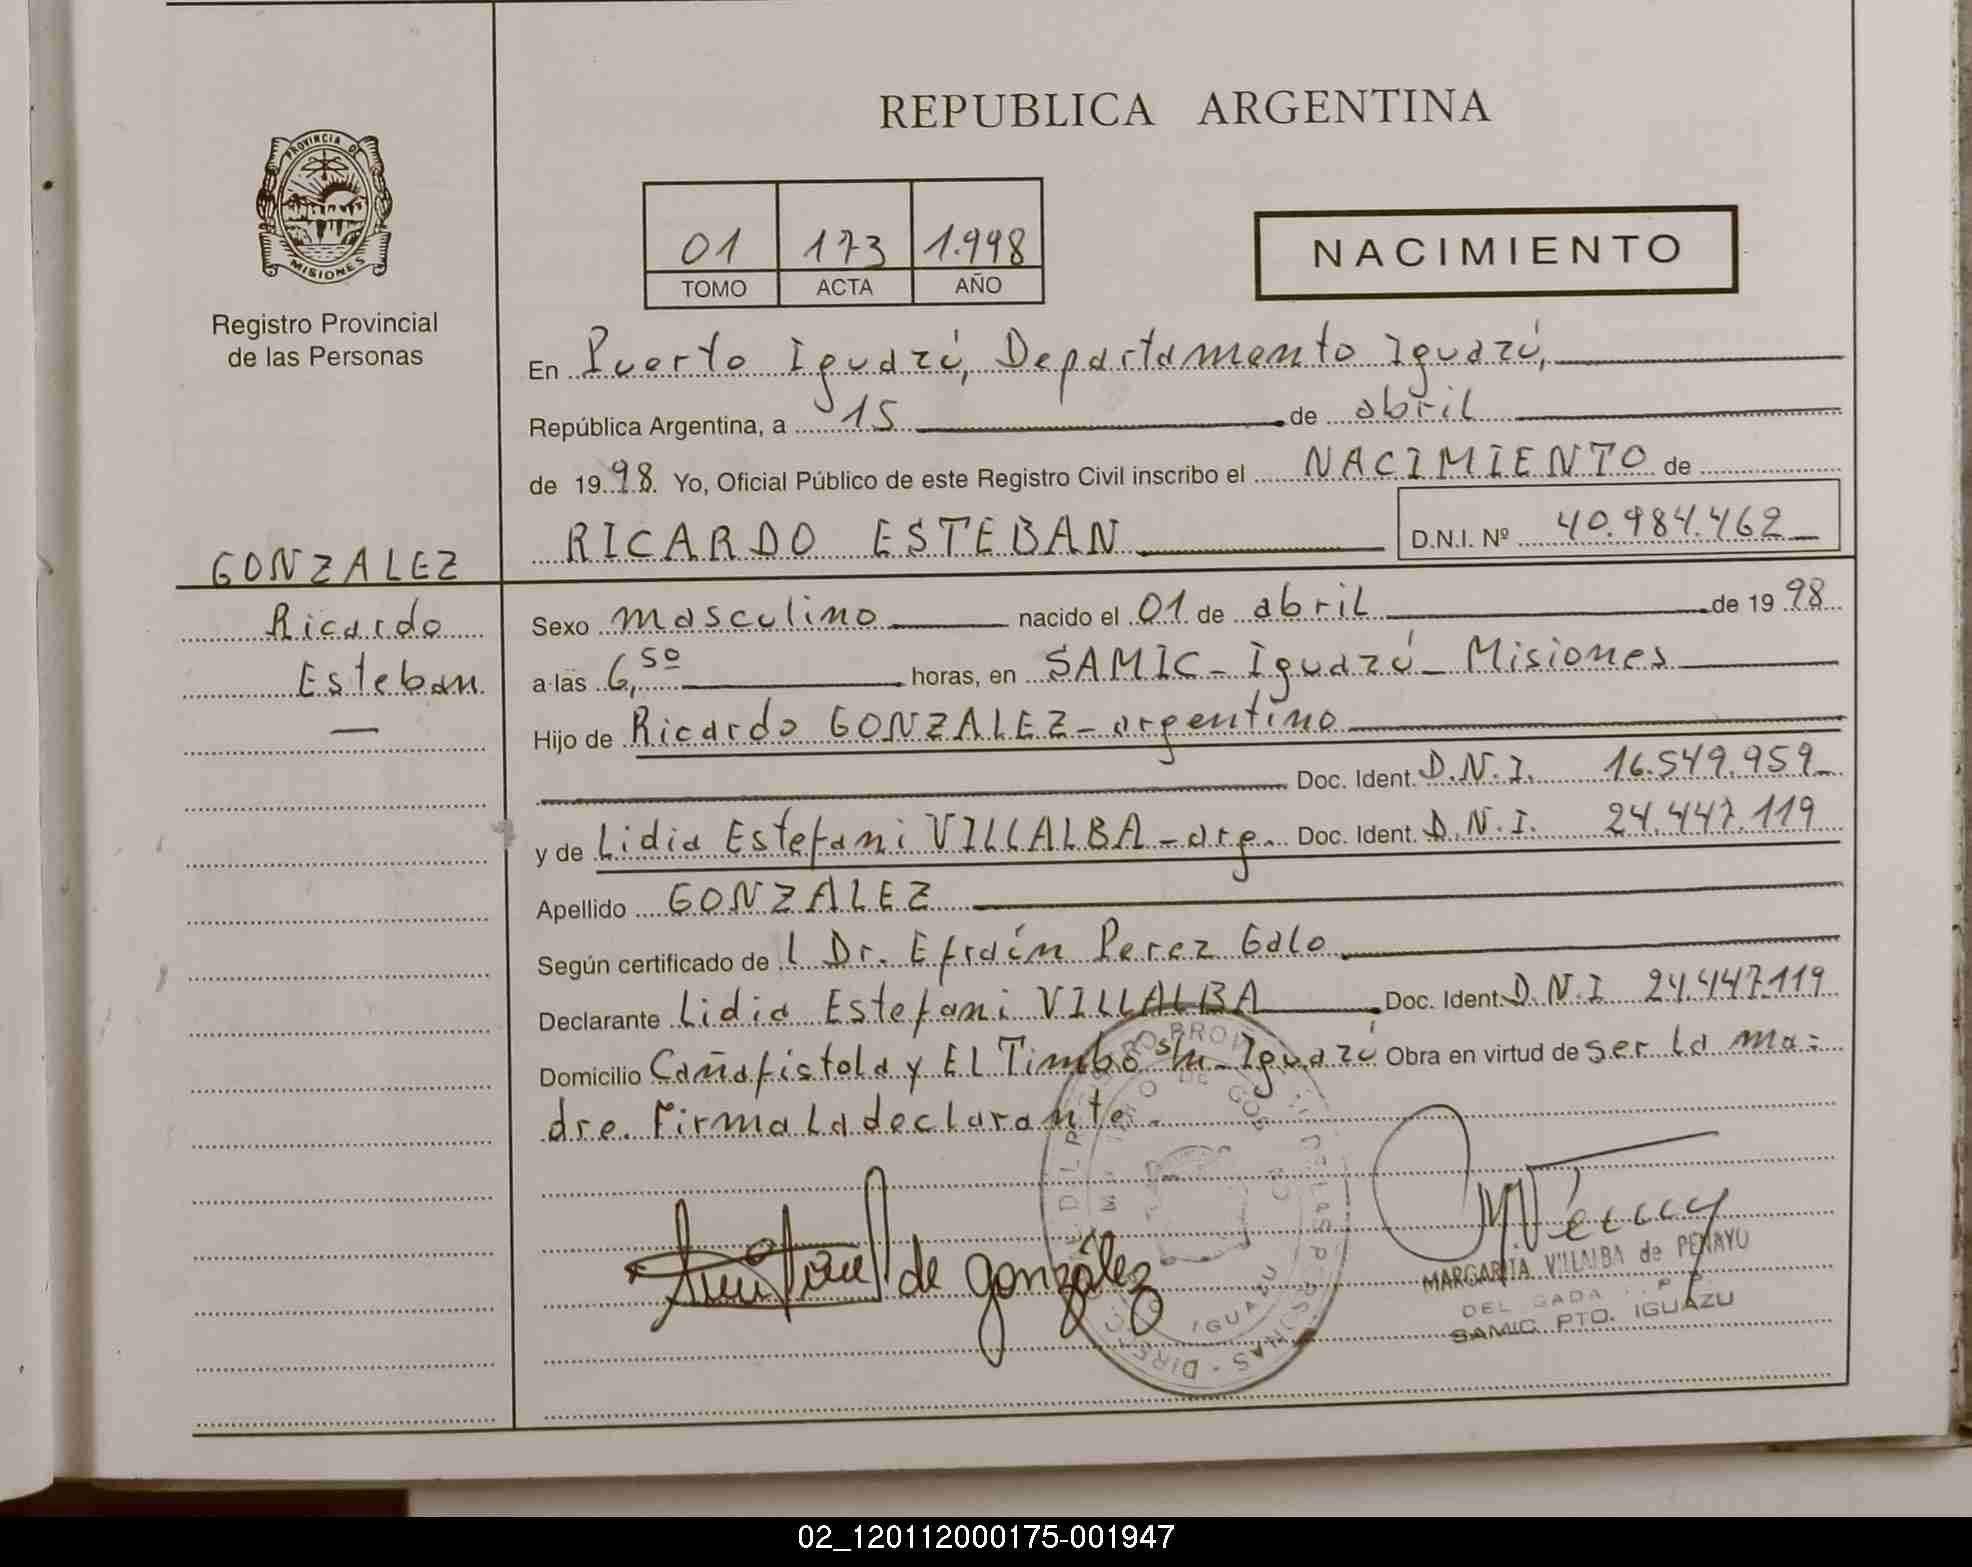 REPUBLICA ARGENTINA
PROVINCIA DE
MISIONES
Registro Provincial
de las Personas
01 173 1.998
TOMO ACTA AÑO
NACIMIENTO
En Puerto Iguazú, Departamento Iguazú,
República Argentina, a 15 de abril
de 1998. Yo, Oficial Público de este Registro Civil inscribo el NACIMIENTO de
RICARDO ESTEBAN D.N.I. Nº 40.984.462
GONZALEZ
Ricardo
Esteban
Sexo masculino nacido el 01 de abril de 1998
a las 6,50 horas, en SAMIC - Iguazú - Misiones
Hijo de Ricardo GONZALEZ - argentino
Doc. Ident. D.N.I. 16.549.959
y de Lidia Estefani VILLALBA - arg. Doc. Ident. D.N.I. 24.447.119
Apellido GONZALEZ
Según certificado de l Dr. Efraín Perez Galo
Declarante Lidia Estefani VILLALBA Doc. Ident. D.N.I 24.447.119
Domicilio Cañafistola y El Timbo s/n - Iguazú Obra en virtud de ser la ma=
dre. Firma la declarante.
de gonzález
MARGARITA VILLALBA de PENAYO
SAMIC PTO. IGUAZU
02_120112000175-001947